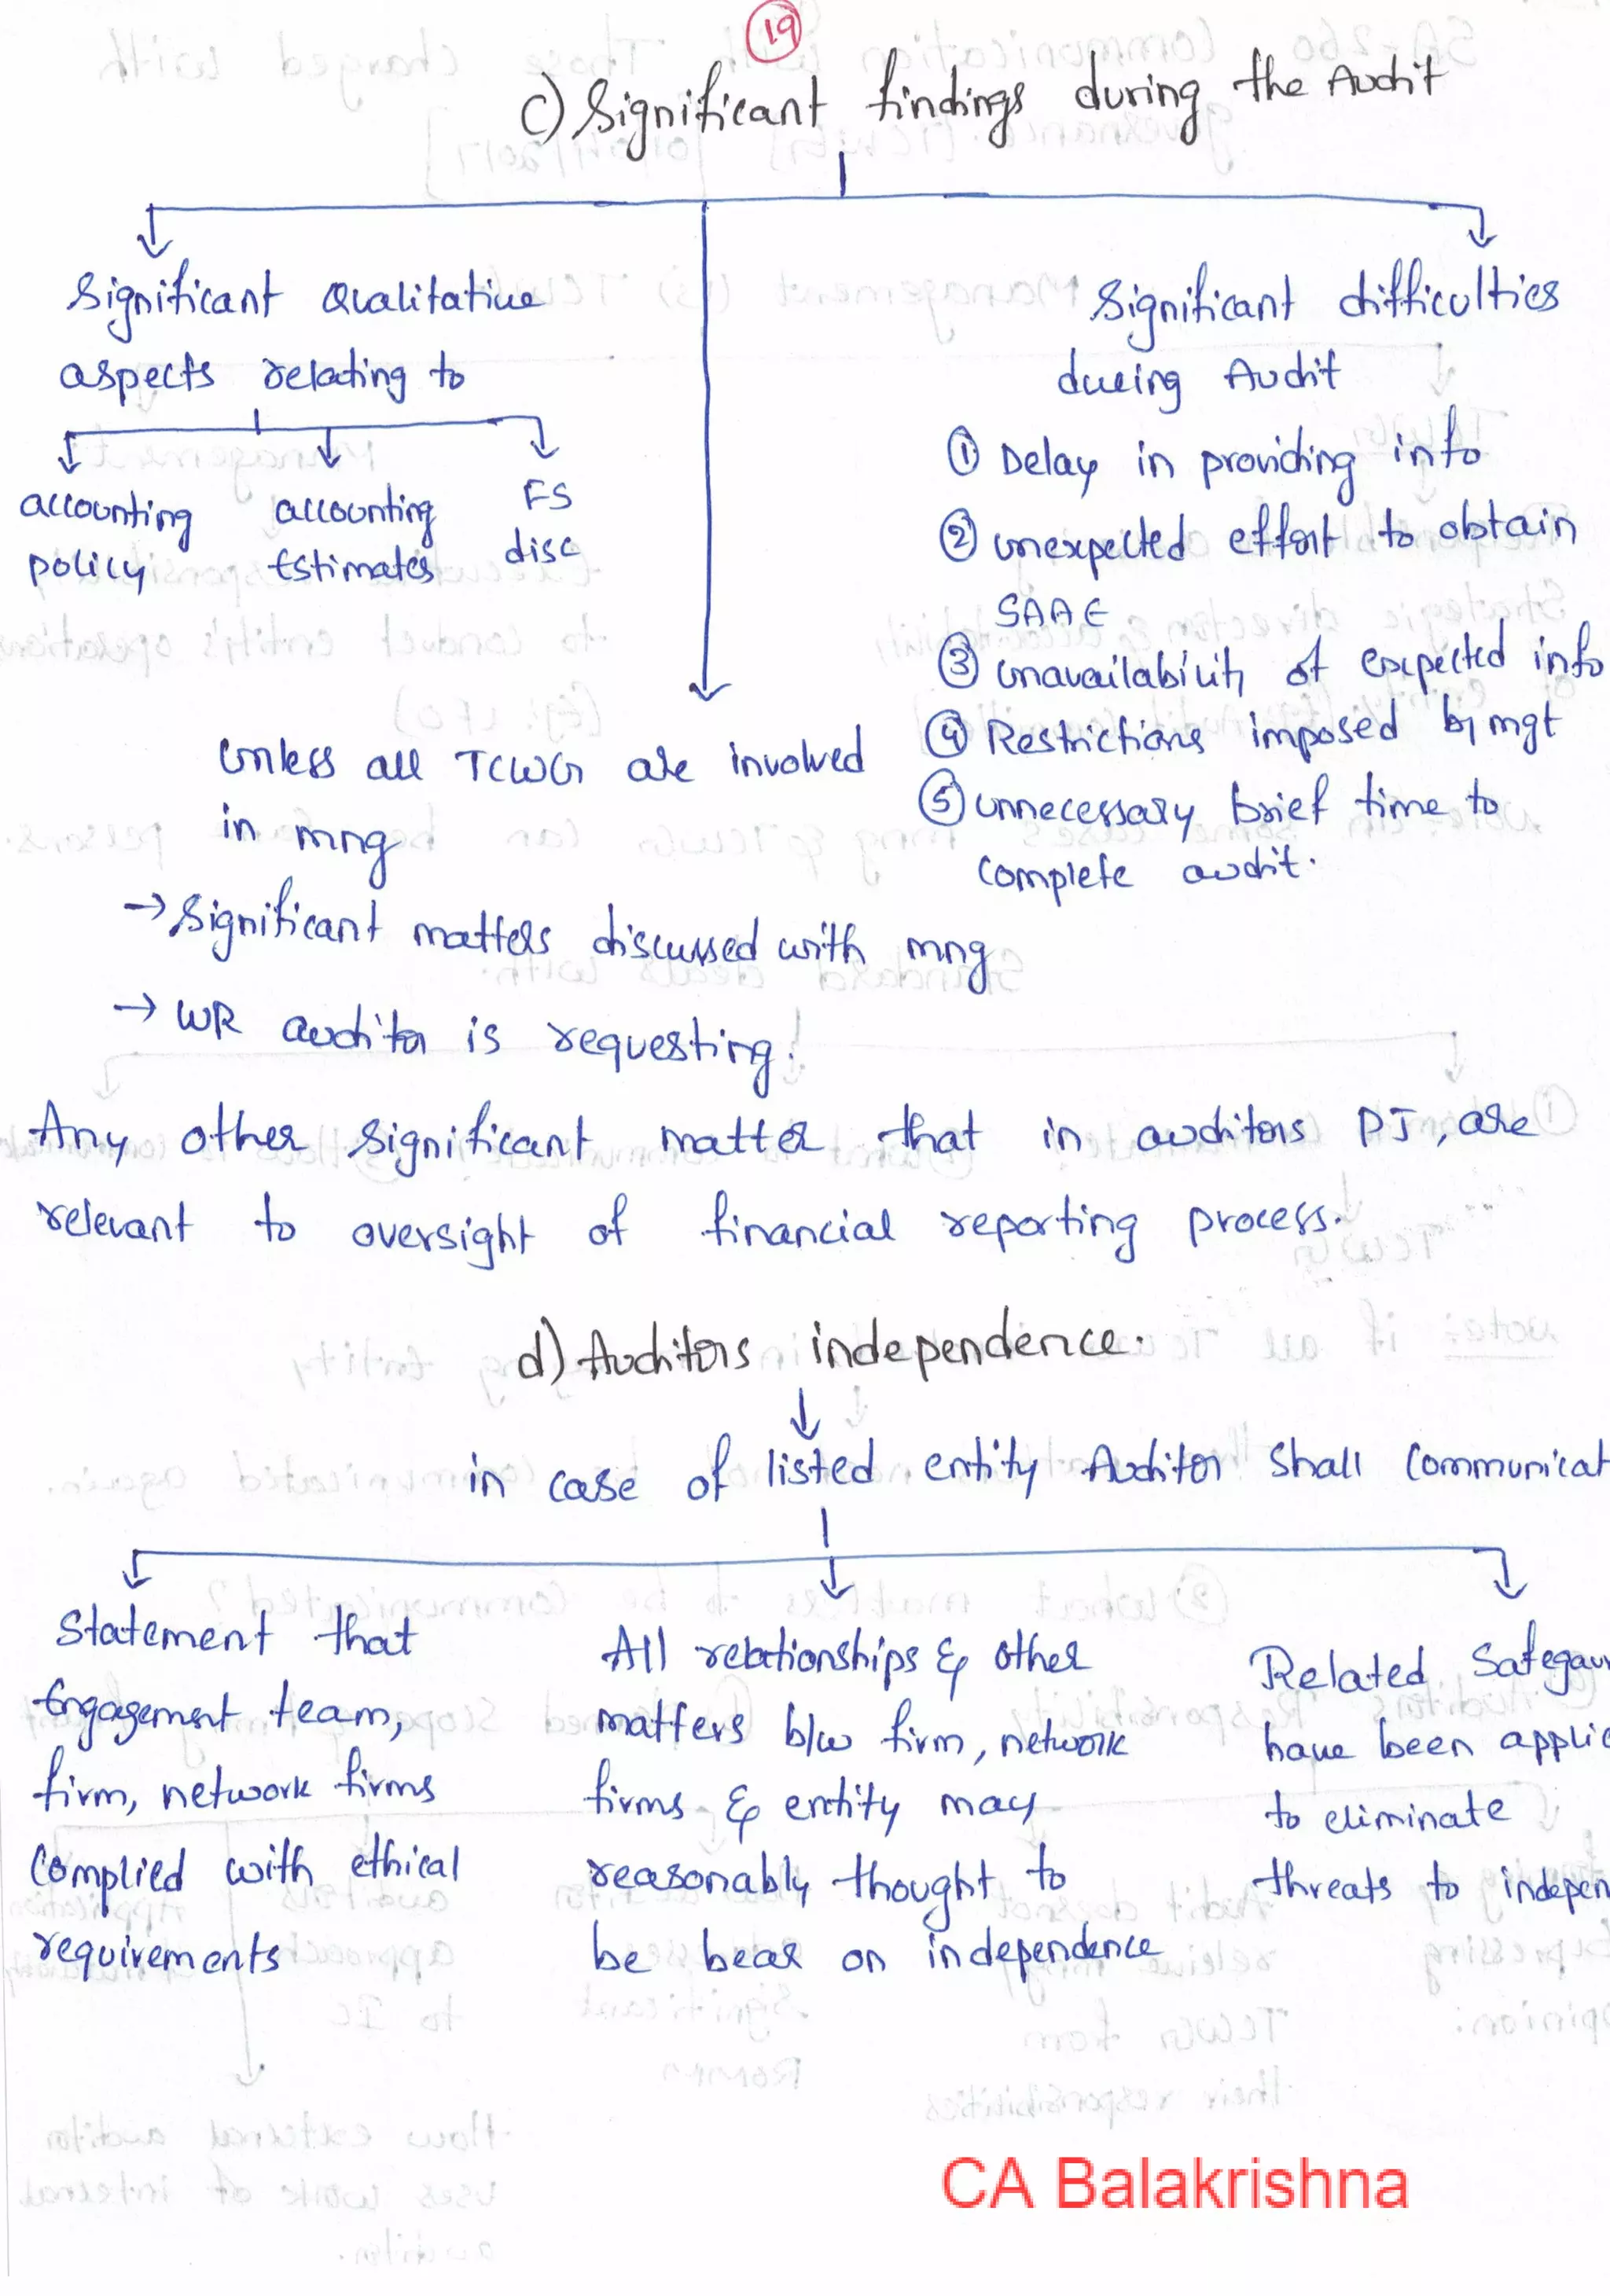 19
c) Significant findings during the Audit
Significant Qualitative
aspects relating to
accounting
policy
accounting
Estimates
FS
disc
Significant difficulties
during Audit
① Delay in providing info
② unexpected effort to obtain
SAAE
③ unavailability of expected info
④ Restrictions imposed by mgt
⑤ unnecessary brief time to
complete audit.
Unless all TCWG are involved
in mng
→ Significant matters discussed with mng
→ WR auditor is requesting.
Any other significant matter that in auditors PJ, are
relevant to oversight of financial reporting process.
d) Auditors independence.
in case of listed entity Auditor shall communicat
Statement that
Engagement team,
firm, network firms
complied with ethical
requirements
All relationships & other
matters b/w firm, network
firms & entity may
reasonably thought to
be bear on independence
Related Safegau
have been applie
to eliminate
threats to indepen
CA Balakrishna